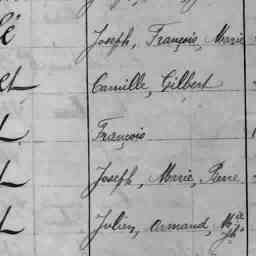 Joseph, François, Marie
Camille, Gilbert
François
Joseph, Marie, Pierre
Julien, Armand, Mie